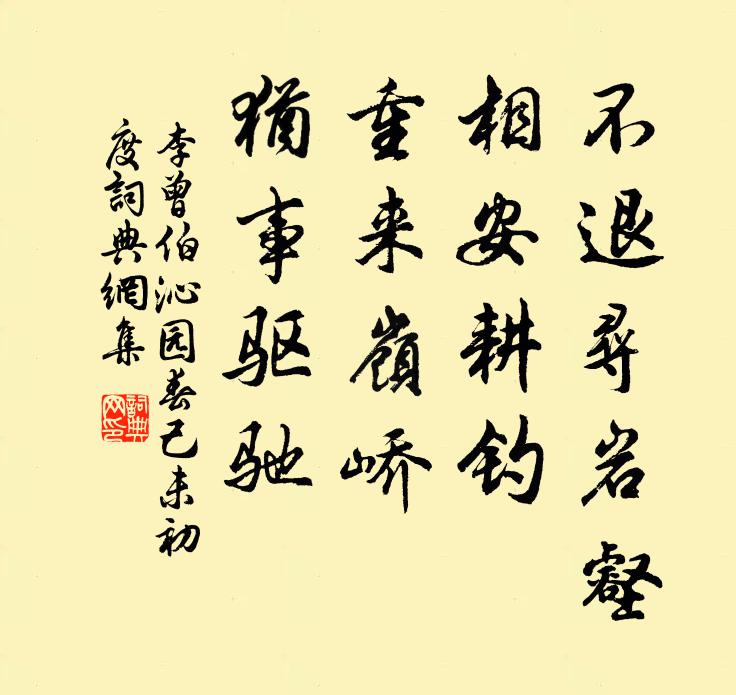 不退尋岩壑
相安耕钓
重来嶺峤
猶事驱驰
李曾伯沁园春己未初
度詞典網集
詞典
网印